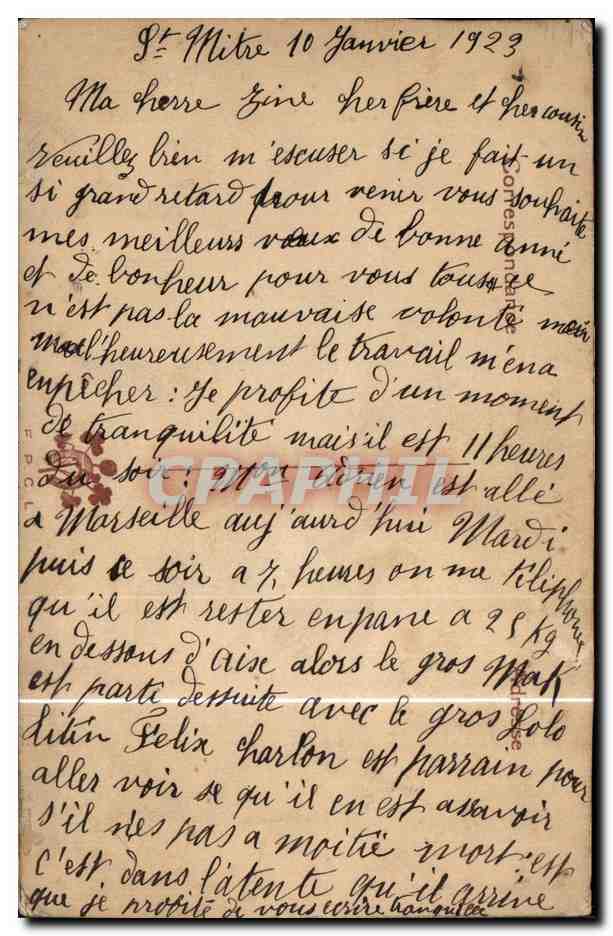 St Mitre 10 Janvier 1923
Ma cherre Zine cher frère et cher cousin
veuillez bien m'escuser si je fait un
si grand retard pour venir vous souhaite
mes meilleurs vœux de bonne anné
et de bonheur pour vous tous se
n'est pas la mauvaise volonté mais
mal'heureusement le travail m'en a
enpêcher : Je profite d'un moment
de tranquilité mais il est 11 heures
du soir : mon est allé
a Marseille auj'aurd'hui Mardi
puis ce soir a 7, heures on ma téliphoner
qu'il est rester en pane a 25 Kg
en dessous d'aix alors le gros Mak
est parti dessuite avec le gros Lolo
Titin Felix charlon est parrain pour
aller voir se qu'il en est assavoir
s'il n'es pas a moitié mort : est
c'est dans l'atente qu'il arrive
que je profite de vous ecrire tranquilee
Correspondance
Adresse
CPARHIL